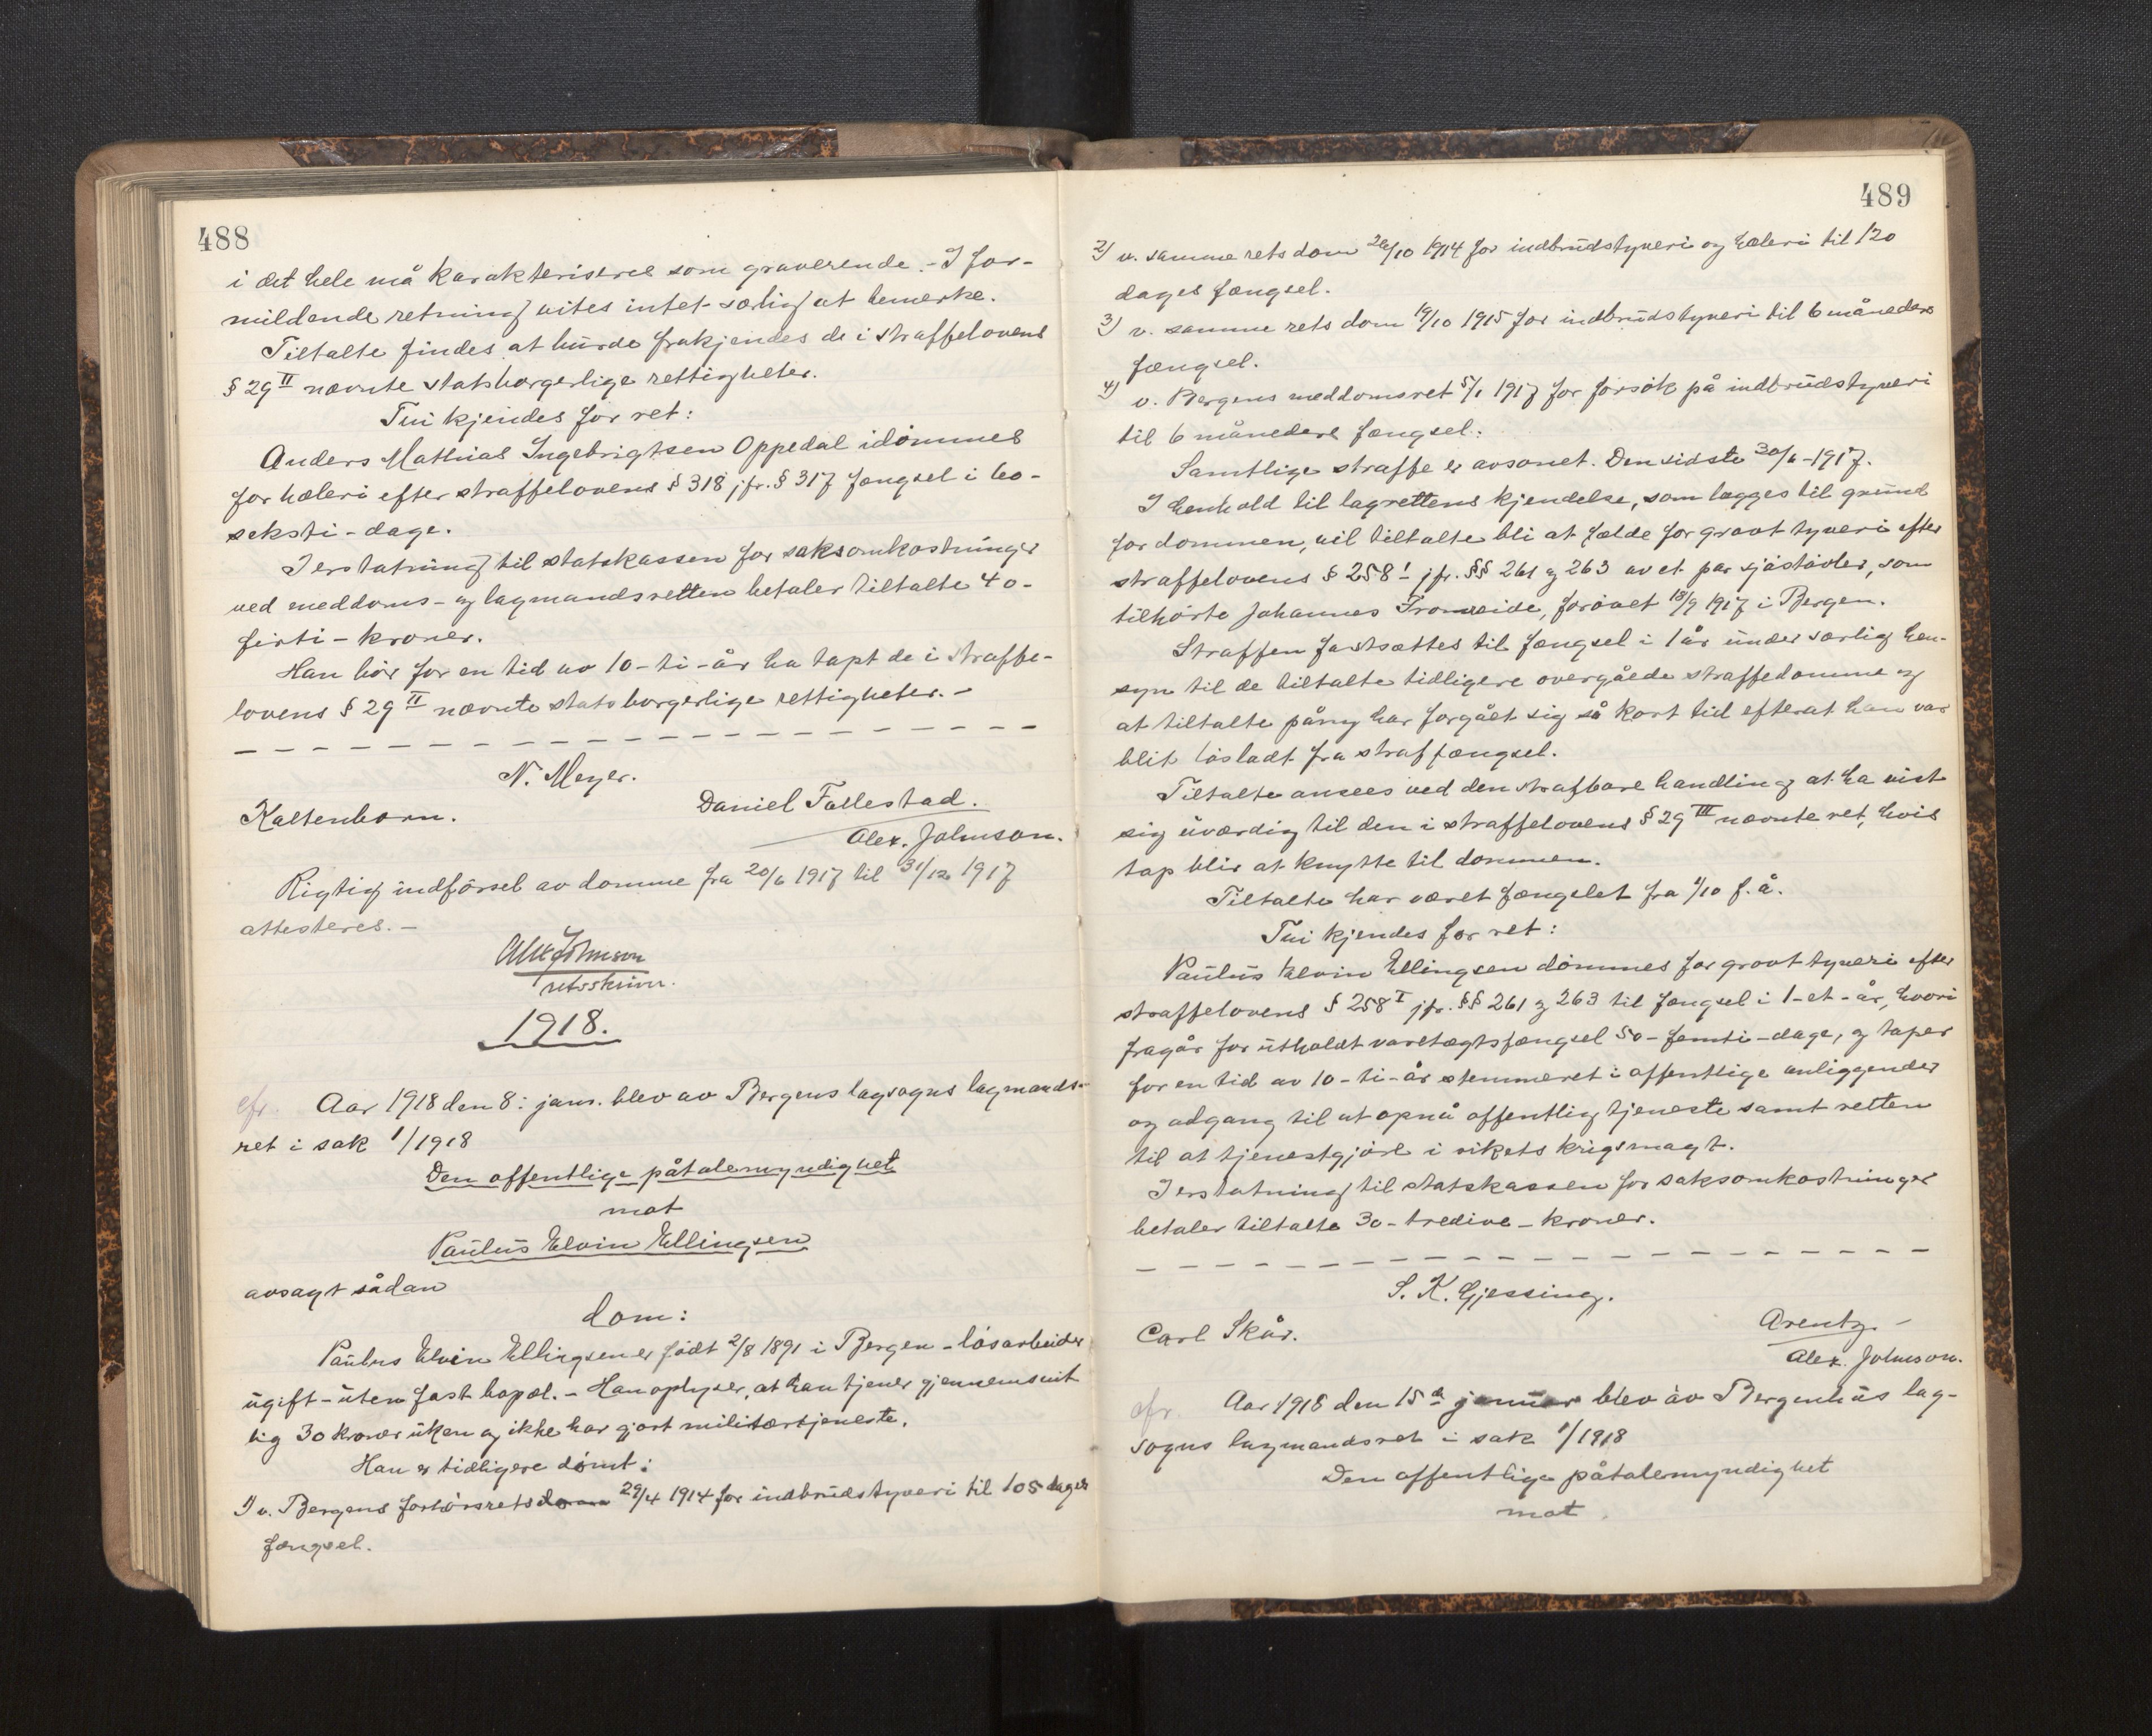 488
i det hele må karakteriseres som graverende. - I for-
mildende retning vites intet særlig at bemerke.
Tiltalte findes at burde frakjendes de i straffelovens
§ 29 II nævnte statsborgerlige rettigheter.
Tui kjendes for ret:
Anders Mathias Ingebrigtsen Oppedal idømmes
for hæleri efter straffelovens § 318 jfr. § 317 fængsel i 60 -
seksti - dage.
I erstatning til statskassen for saksomkostninger
ved meddoms- og lagmandsretten betaler tiltalte 40 -
firti - kroner.
Han bør for en tid av 10 - ti - år ha tapt de i straffe-
lovens § 29 II nævnte statsborgerlige rettigheter. -
N. Meyer.
Kaltenborn.
Daniel Follestad.
Alex. Johnson.
Rigtig indførsel av domme fra 20/6 1917 til 31/12 1917
attesteres. -
Alex Johnson
retsskriver.
1918.
cfr. Aar 1918 den 8: jan. blev av Bergens lagsogns lagmands-
ret i sak 1/1918
Den offentlige påtalemyndighet
mot
Paulus Elvin Ellingsen
avsagt sådan
dom:
Paulus Elvin Ellingsen er født 2/8 1891 i Bergen - løsarbeider
ugift - uten fast bopæl. - Han oplyser, at han tjener gjennemsnit
lig 30 kroner uken og ikke har gjort militærtjeneste.
Han er tidligere dømt:
1) v. Bergens forhørsrets dom 29/4 1914 for indbrudstyveri til 105 dages
fængsel.
489
2) v. samme rets dom 26/10 1914 for indbrudstyveri og hæleri til 120
dages fængsel.
3) v. samme rets dom 19/10 1915 for indbrudstyveri til 6 måneders
fængsel.
4) v. Bergens meddomsret 5/1 1917 for forsøk på indbrudstyveri
til 6 måneders fængsel.
Samtlige straffe er avsonet. Den sidste 30/6 - 1917.
I henhold til lagrettens kjendelse, som lægges til grund
for dommen, vil tiltalte bli at fælde for grovt tyveri efter
straffelovens § 258 I jfr. §§ 261 og 263 av et par sjøstøvler, som
tilhørte Johannes Fromreide, forøvet 18/9 1917 i Bergen.
Straffen fastsættes til fængsel i 1 år under særlig hen-
syn til de tiltalte tidligere overgåede straffedomme og
at tiltalte påny har forgået sig så kort tid efterat han var
blit løsladt fra straffængsel.
Tiltalte ansees ved den strafbare handling at ha vist
sig uværdig til den i straffelovens § 29 III nævnte ret, hvis
tap blir at knytte til dommen.
Tiltalte har været fængslet fra 1/10 f. å.
Tui kjendes for ret:
Paulus Elvin Ellingsen dømmes for grovt tyveri efter
straffelovens § 258 I jfr. §§ 261 og 263 til fængsel i 1 - et - år, hvori
fragår for utholdt varetægtsfængsel 50 - femti - dage, og taper
for en tid av 10 - ti - år stemmeret i offentlige anliggender
og adgang til at opnå offentlig tjeneste samt retten
til at tjenestgjøre i rikets krigsmagt.
I erstatning til statskassen for saksomkostninger
betaler tiltalte 30 - tredive - kroner.
S. K. Gjessing.
Carl Skår.
Arentz -
Alex. Johnson.
cfr. Aar 1918 den 15 de januar blev av Bergenhus lag-
sogns lagmandsret i sak 1/1918
Den offentlige påtalemyndighet
mot